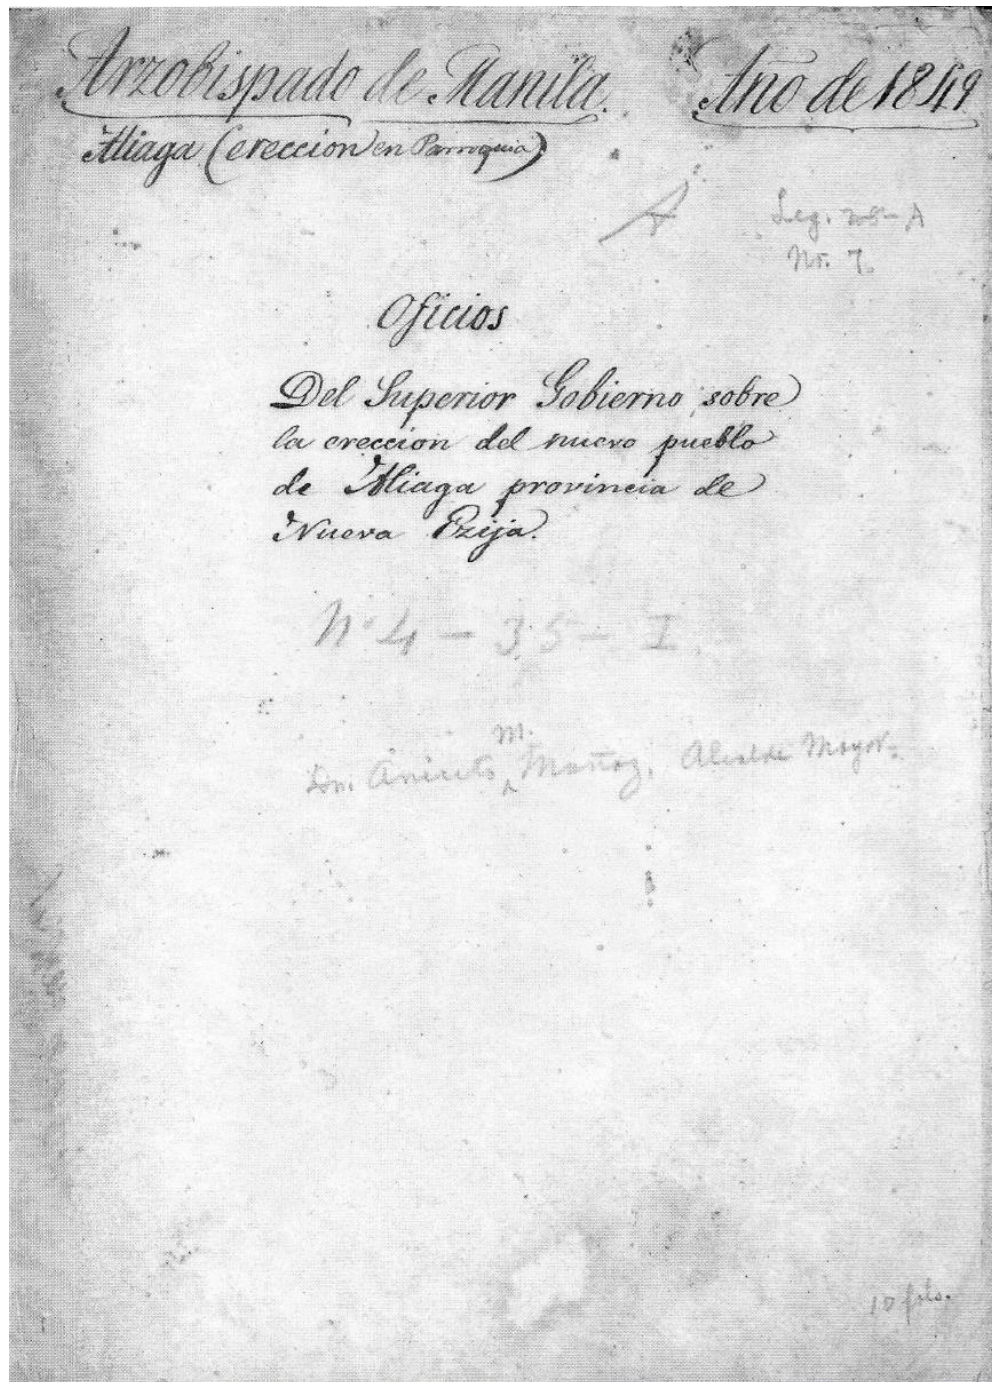 Arzobispado de Manila. Año de 1849
Aliaga (ereccion en Parroquia)
A
Leg. 25-A
No. 7.
Oficios
Del Superior Gobierno sobre
la ereccion del nuevo pueblo
de Aliaga provincia de
Nueva Ezija.
Nº 4 - 35 - I
M.
Dn. Aniceto Muñoz, Alcalde Mayor.
10 fols.